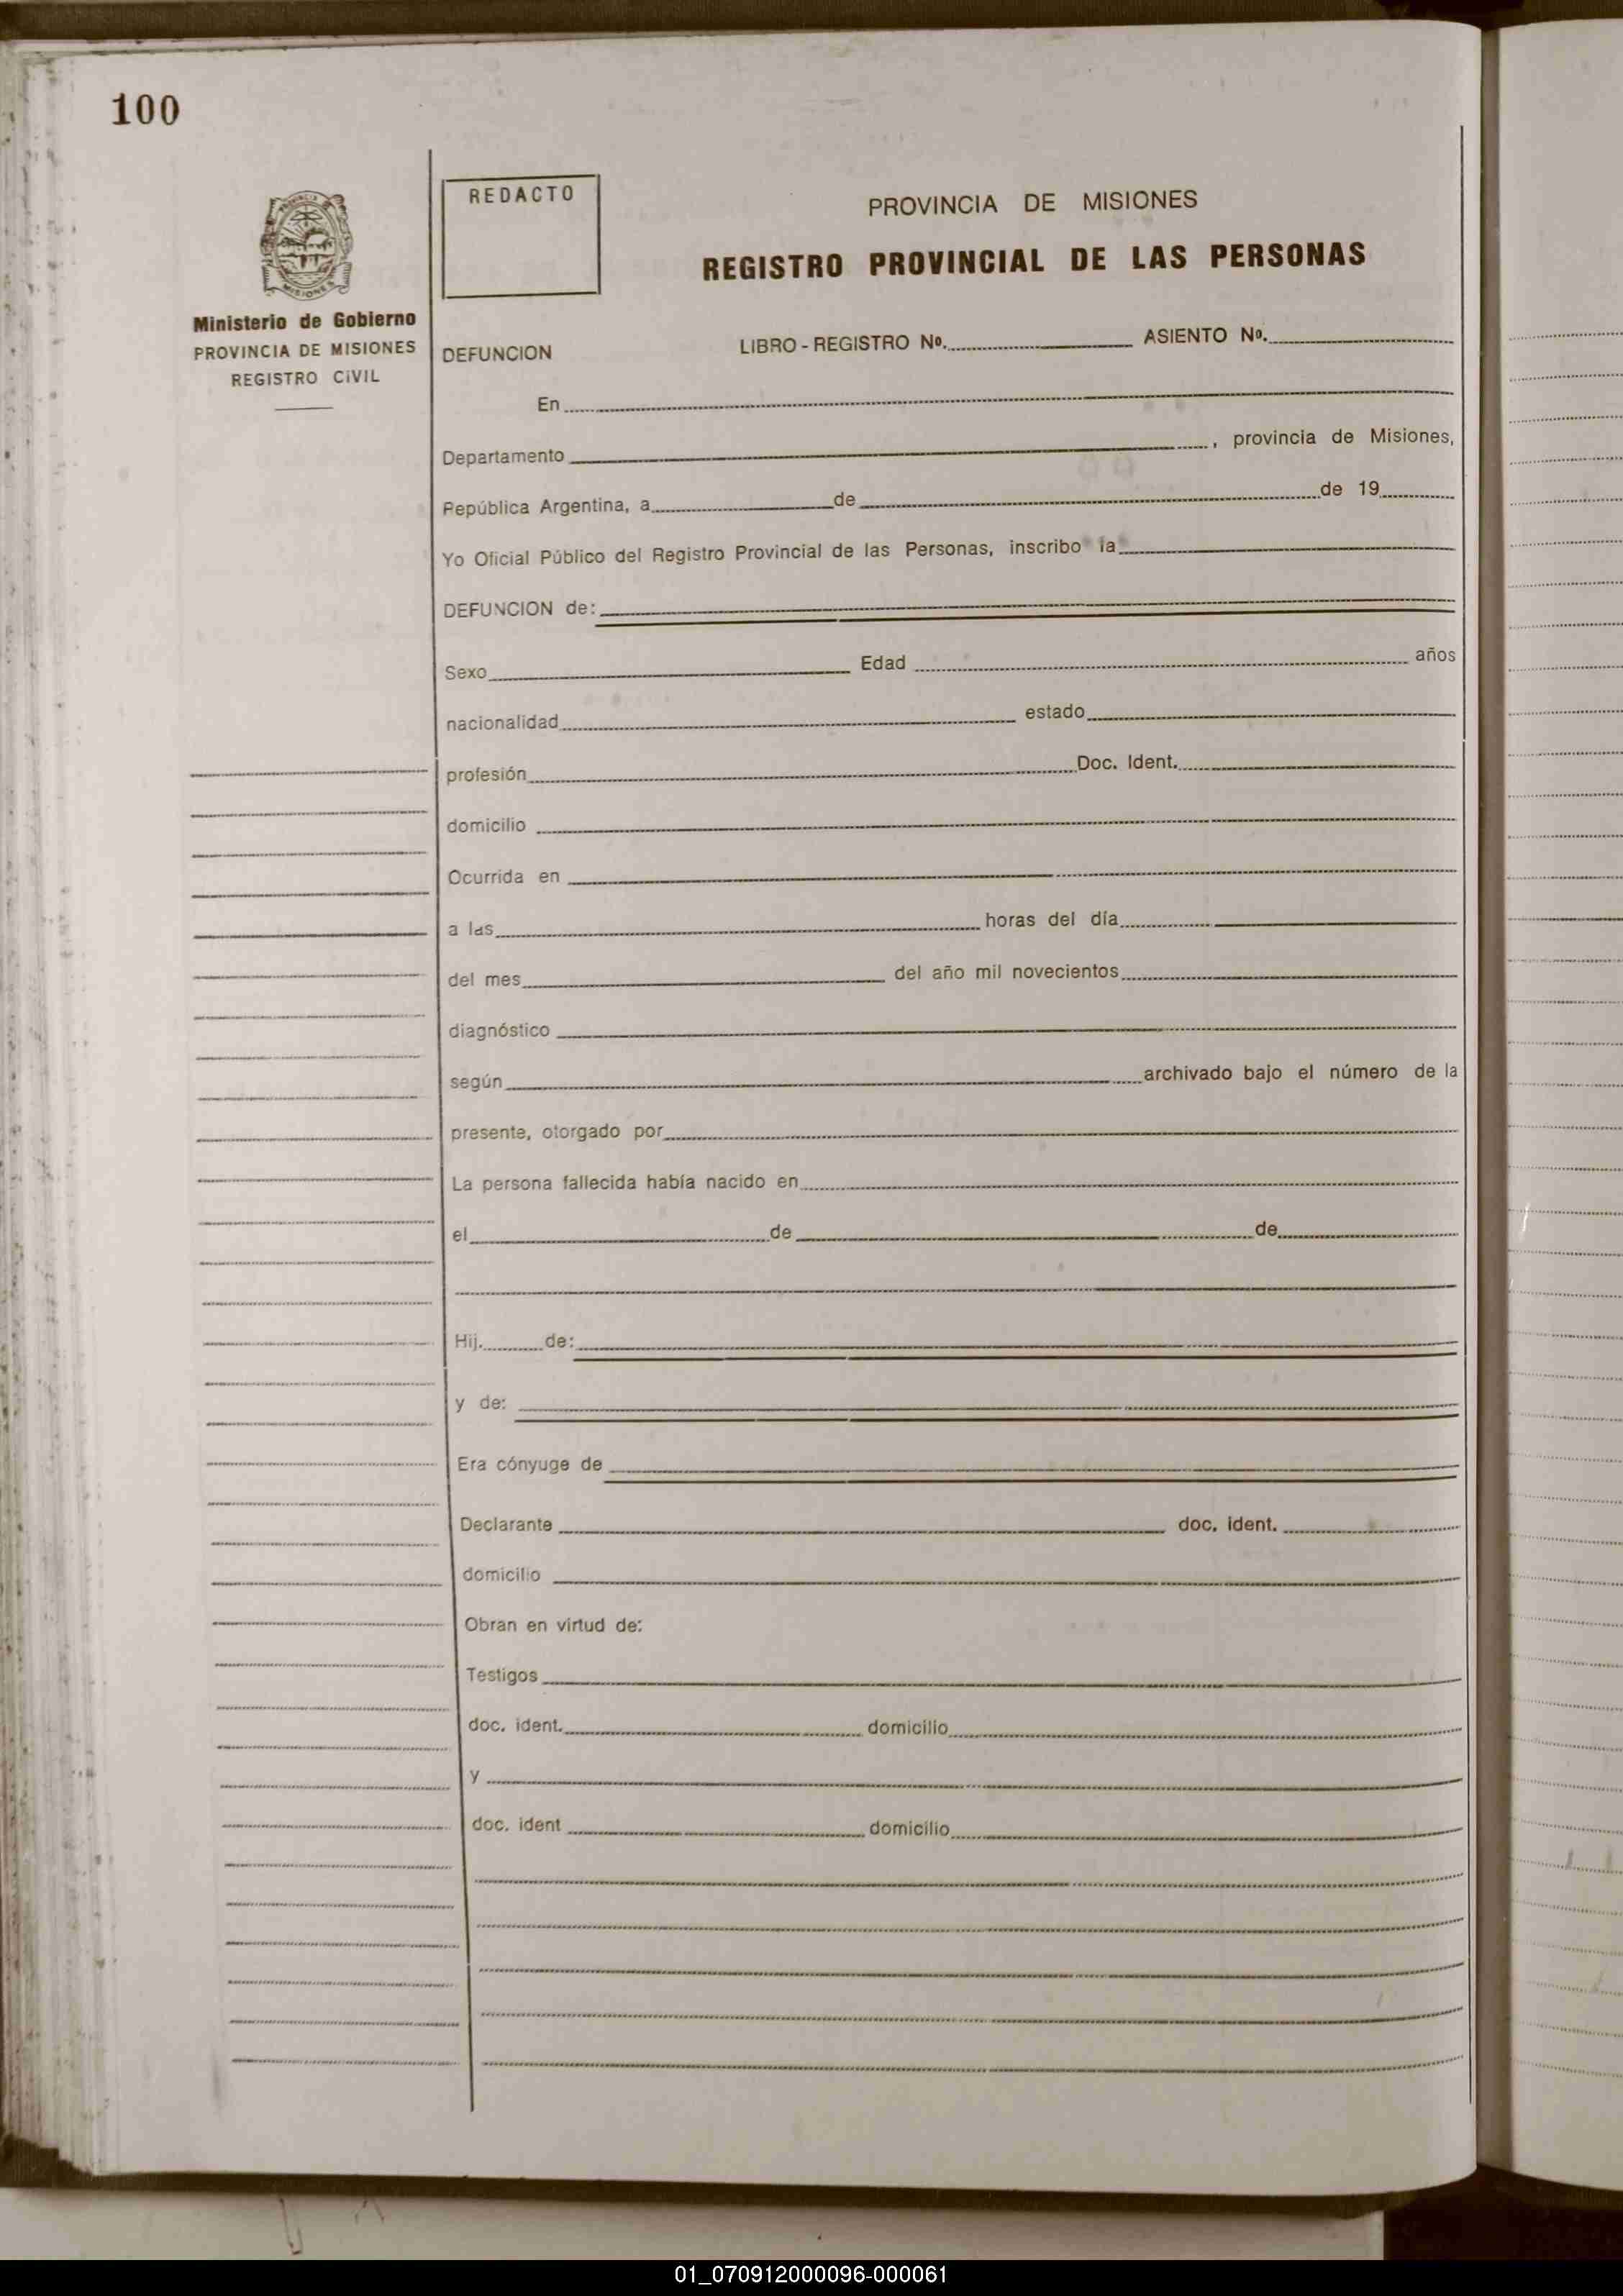 100
PROVINCIA DE
MISIONES
Ministerio de Gobierno
PROVINCIA DE MISIONES
REGISTRO CIVIL
REDACTO
PROVINCIA DE MISIONES
REGISTRO PROVINCIAL DE LAS PERSONAS
DEFUNCION LIBRO - REGISTRO Nº. ASIENTO Nº.
En
Departamento , provincia de Misiones,
República Argentina, a de de 19
Yo Oficial Público del Registro Provincial de las Personas, inscribo la
DEFUNCION de:
Sexo Edad años
nacionalidad estado
profesión Doc. Ident.
domicilio
Ocurrida en
a las horas del día
del mes del año mil novecientos
diagnóstico
según archivado bajo el número de la
presente, otorgado por
La persona fallecida había nacido en
el de de
Hij. de:
y de:
Era cónyuge de
Declarante doc. ident.
domicilio
Obran en virtud de:
Testigos
doc. ident. domicilio
y
doc. ident domicilio
01_070912000096-000061